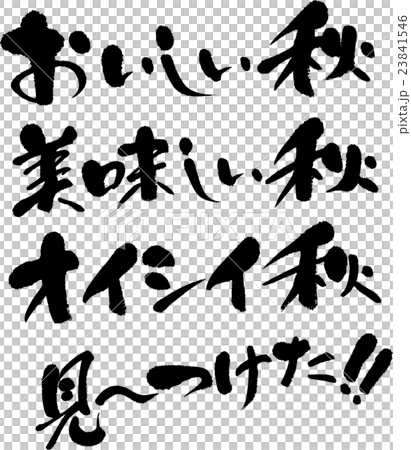 おいしい秋
美味しい秋
オイシイ秋
見〜つけた!!
PIXTA
pixta.jp - 23841546